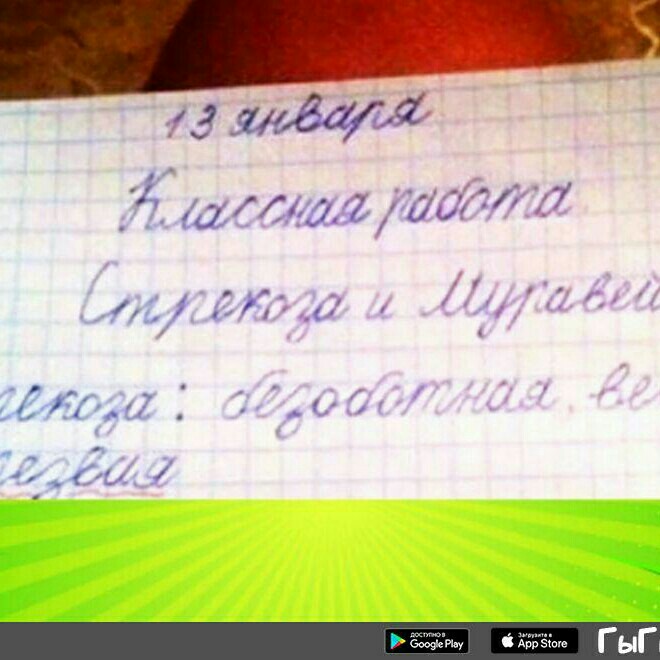 13 января
Классная работа
Стрекоза и Муравей
рекоза: беззоботная, ве
резвая
ДОСТУПНО В
Google Play
Загрузите в
App Store
ГыГ